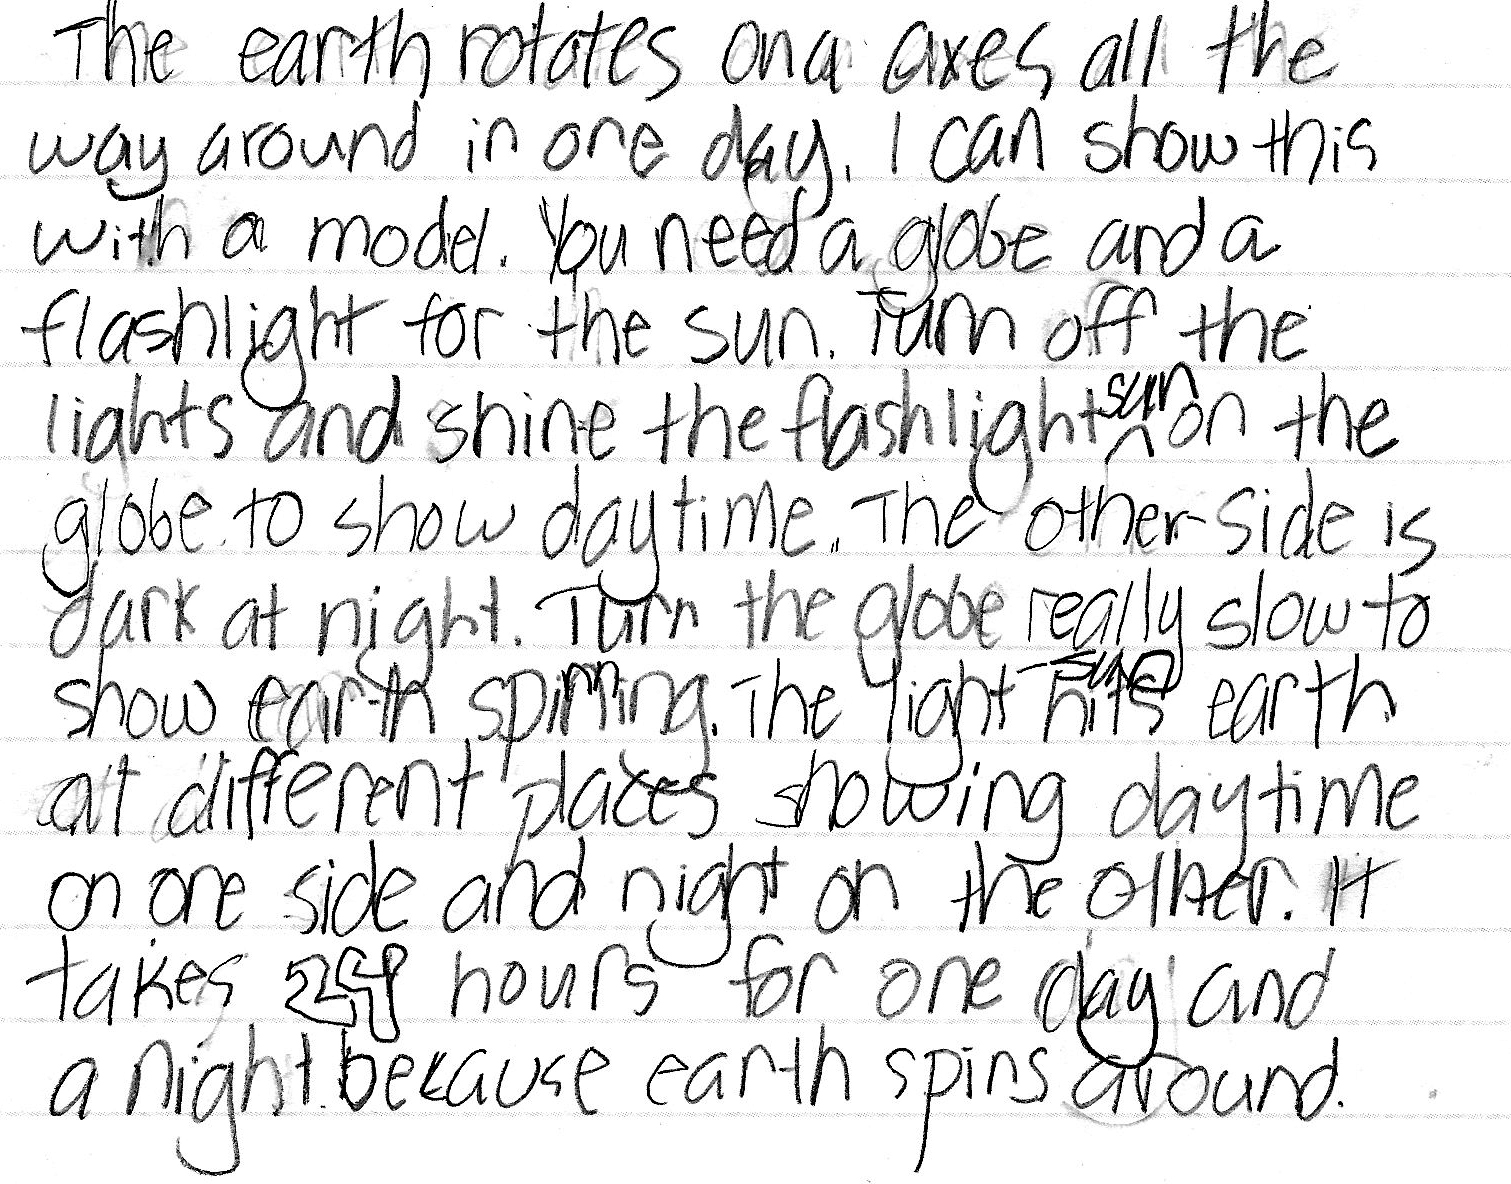 The earth rotates on a axes all the
way around in one day. I can show this
with a model. You need a globe and a
flashlight for the sun. Turn off the
lights and shine the flashlight sun on the
globe to show daytime. The other side is
dark at night. Turn the globe really slow to
show earth spinning. The light hits earth
at different places showing daytime
on one side and night on the other. It
takes 24 hours for one day and
a night because earth spins around.